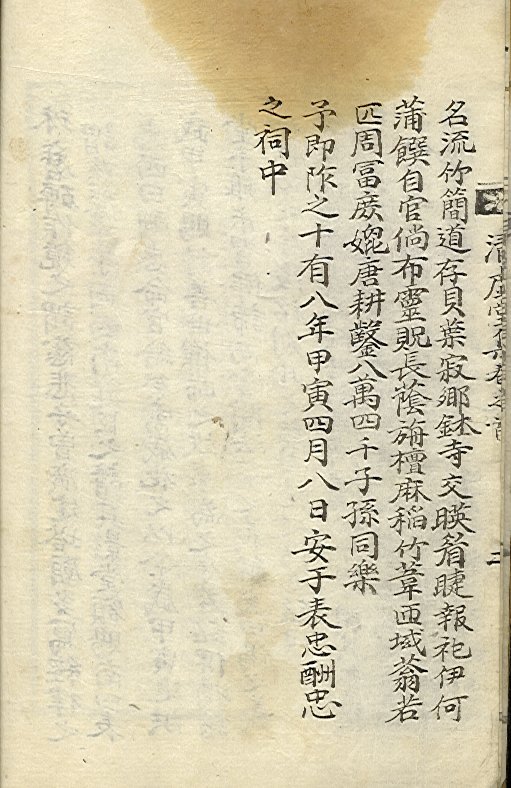 名流竹簡道存貝葉寂鄉鉢寺交暎眉睫報祀伊何
蒲饌自官倘布靈貺長蔭旃檀麻稻竹葦匝域蓊若
匹周冨庶媲唐耕鑿八萬四千子孫同樂
予即阼之十有八年甲寅四月八日安于表忠酬忠
之祠中
清虛堂
二